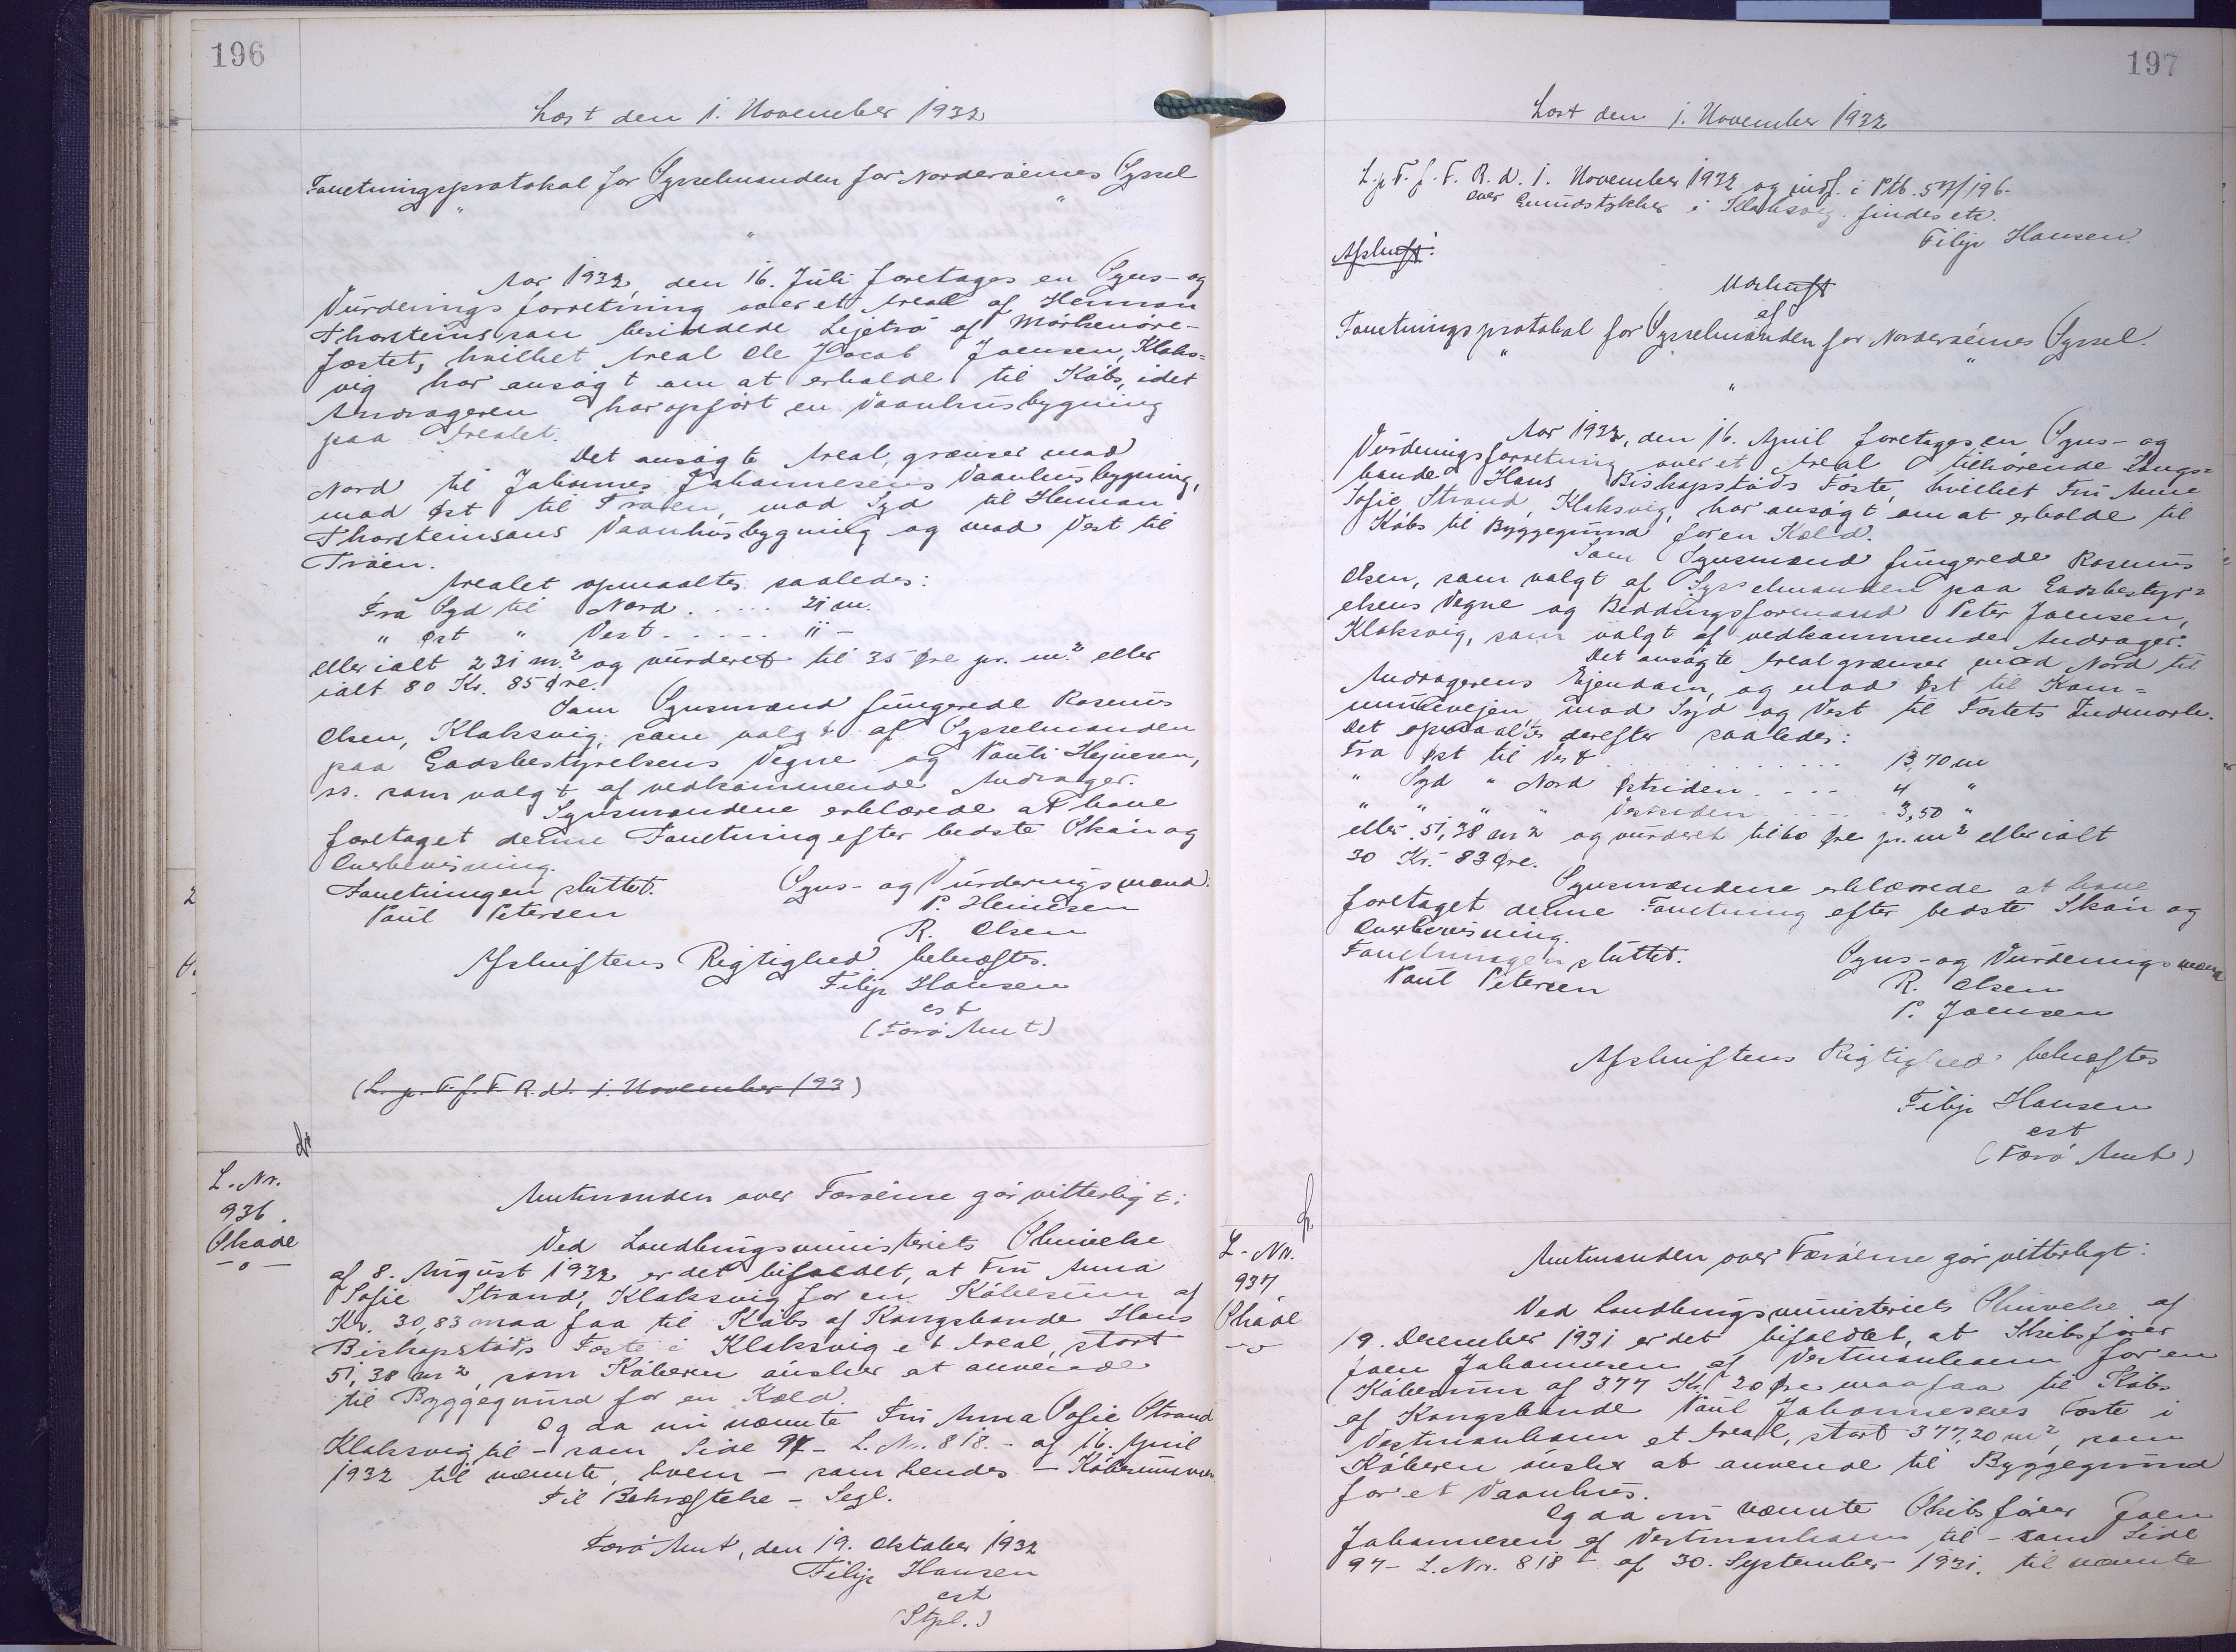 196
Læst den 1. November 1932
Forretningsprotokol for Sysselmanden for Norderøernes Syssel
" "
"
Aar 1932, den 16. Juli foretages en Syns- og
Vurderingsforretning over et Areal af Heman
Thorsteinssøn besiddede Lejetrø af Mörkenöre-
fæstet, hvilket Areal Ole Jacob Joensen, Klaks=
vig har ansøgt om at erholde til Købs, idet
Andrageren har opført en Vaanhusbygning
paa Arealet.
Det ansøgte Areal grænser mod
Nord til Johannes Johannesens Vaanhusbygning,
mod Øst til Trøen, mod Syd til Heman
Thorsteinsøns Vaanhusbygning og mod Vest til
Trøen.
Arealet opmaaltes saaledes:
Fra Syd til Nord ..... 21 m.
" Øst " Vest ..... 11 -
eller ialt 231 m.² og vurderet til 35 Øre pr. m.² eller
ialt 80 Kr. 85 Øre.
Som Synsmænd fungerede Rasmus
Olsen, Klaksvig, som valgt af Sysselmanden
paa Godsbestyrelsens Vegne og Pauli Hejnesen,
ss. som valgt af vedkommende Andrager.
Synsmændene erklærede at have
foretaget denne Forretning efter bedste Skøn og
Overbevisning.
Forretningen sluttet. Syns- og Vurderingsmænd:
Poul Petersen P. Heinesen
R. Olsen
Afskriftens Rigtighed bekræftes.
Filip Hansen
cst
(Færø Amt)
(L. p. T. f. F. R. d. 1. November 193)
L. Nr.
936.
Skøde
-o-
Amtmanden over Færøerne gør vitterligt:
Ved Landbrugsministeriets Skrivelse
af 8. August 1932 er det bifaldet, at Fru Anna
Sofie Strand, Klaksvig for en Købesum af
Kr. 30,83 maa faa til Købs af Kongsbonde Hans
Biskopstøds Fæste i Klaksvig et Areal, stort
51,38 m², som Køberen ønsker at anvende
til Byggegrund for en Kæld.
Og da nu nævnte Fru Anna Sofie Strand
Klaksvig til - som Side 97 - L. Nr. 818. - af 16. April
1932 til nævnte, hvem - som hendes - Købesummen
Til Bekræftelse - Segl.
Færø Amt, den 19. Oktober 1932
Filip Hansen
cst
(Stpl.)
197
Læst den 1. November 1932
L. p. T. f. F. R. d. 1. November 1932 og indf. i Ptb. 57/196.
over Grundstykker i Klaksvig. findes etc.
Filip Hansen
Afskrift:
Udskrift
af
Forretningsprotokol for Sysselmanden for Norderøernes Syssel.
" "
"
Aar 1932, den 16. April foretages en Syns- og
Vurderingsforretning over et Areal tilhørende Kongs=
bonde Hans Biskopstøds Fæste, hvilket Fru Anne
Sofie Strand, Klaksvig, har ansøgt om at erholde til
Købs til Byggegrund for en Kæld.
Som Synsmænd fungerede Rasmus
Olsen, som valgt af Sysselmanden paa Godsbestyr=
elsens Vegne og Beddingsformand Peter Joensen,
Klaksvig, som valgt af vedkommende Andrager.
Det ansøgte Areal grænser mod Nord til
Andragerens Ejendom, og mod Øst til Kom=
munevejen mod Syd og Vest til Fæstets Indmark.
Det opmaaltes derefter saaledes:
Fra Øst til Vest ............ 13,70 m
" Syd " Nord Østsiden .... 4 "
" " " " Vestsiden .... 3,50 "
eller 51,38 m² og vurderet til 60 Øre pr. m² eller ialt
30 Kr. 83 Øre.
Synsmændene erklærede at have
foretaget denne Forretning efter bedste Skøn og
Overbevisning.
Forretningen sluttet. Syns- og Vurderingsmænd
Poul Petersen R. Olsen
P. Joensen
Afskriftens Rigtighed bekræftes
Filip Hansen
cst
(Færø Amt)
L. Nr.
937
Skøde
-o-
Amtmanden over Færøerne gør vitterligt:
Ved Landbrugsministeriets Skrivelse af
19. December 1931 er det bifaldet, at Skibsfører
Joen Johannesen af Vestmanhavn for en
Købesum af 377 Kr. 20 Øre maa faa til Købs
af Kongsbonde Poul Johannesens Fæste i
Vestmanhavn et Areal, stort 377,20 m², som
Køberen ønsker at anvende til Byggegrund
for et Vaanhus.
Og da nu nævnte Skibsfører Joen
Johannesen af Vestmanhavn til - som Side
97 - L. Nr. 818 - af 30. September 1931. til nævnte